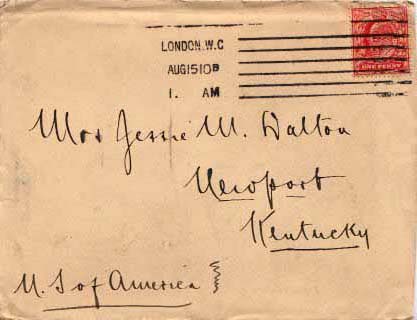 LONDON.W.C
AUG 15 10 B
1. AM
ONE PENNY
Mrs Jessie M. Dalton
Newport
Kentucky
U. S of America